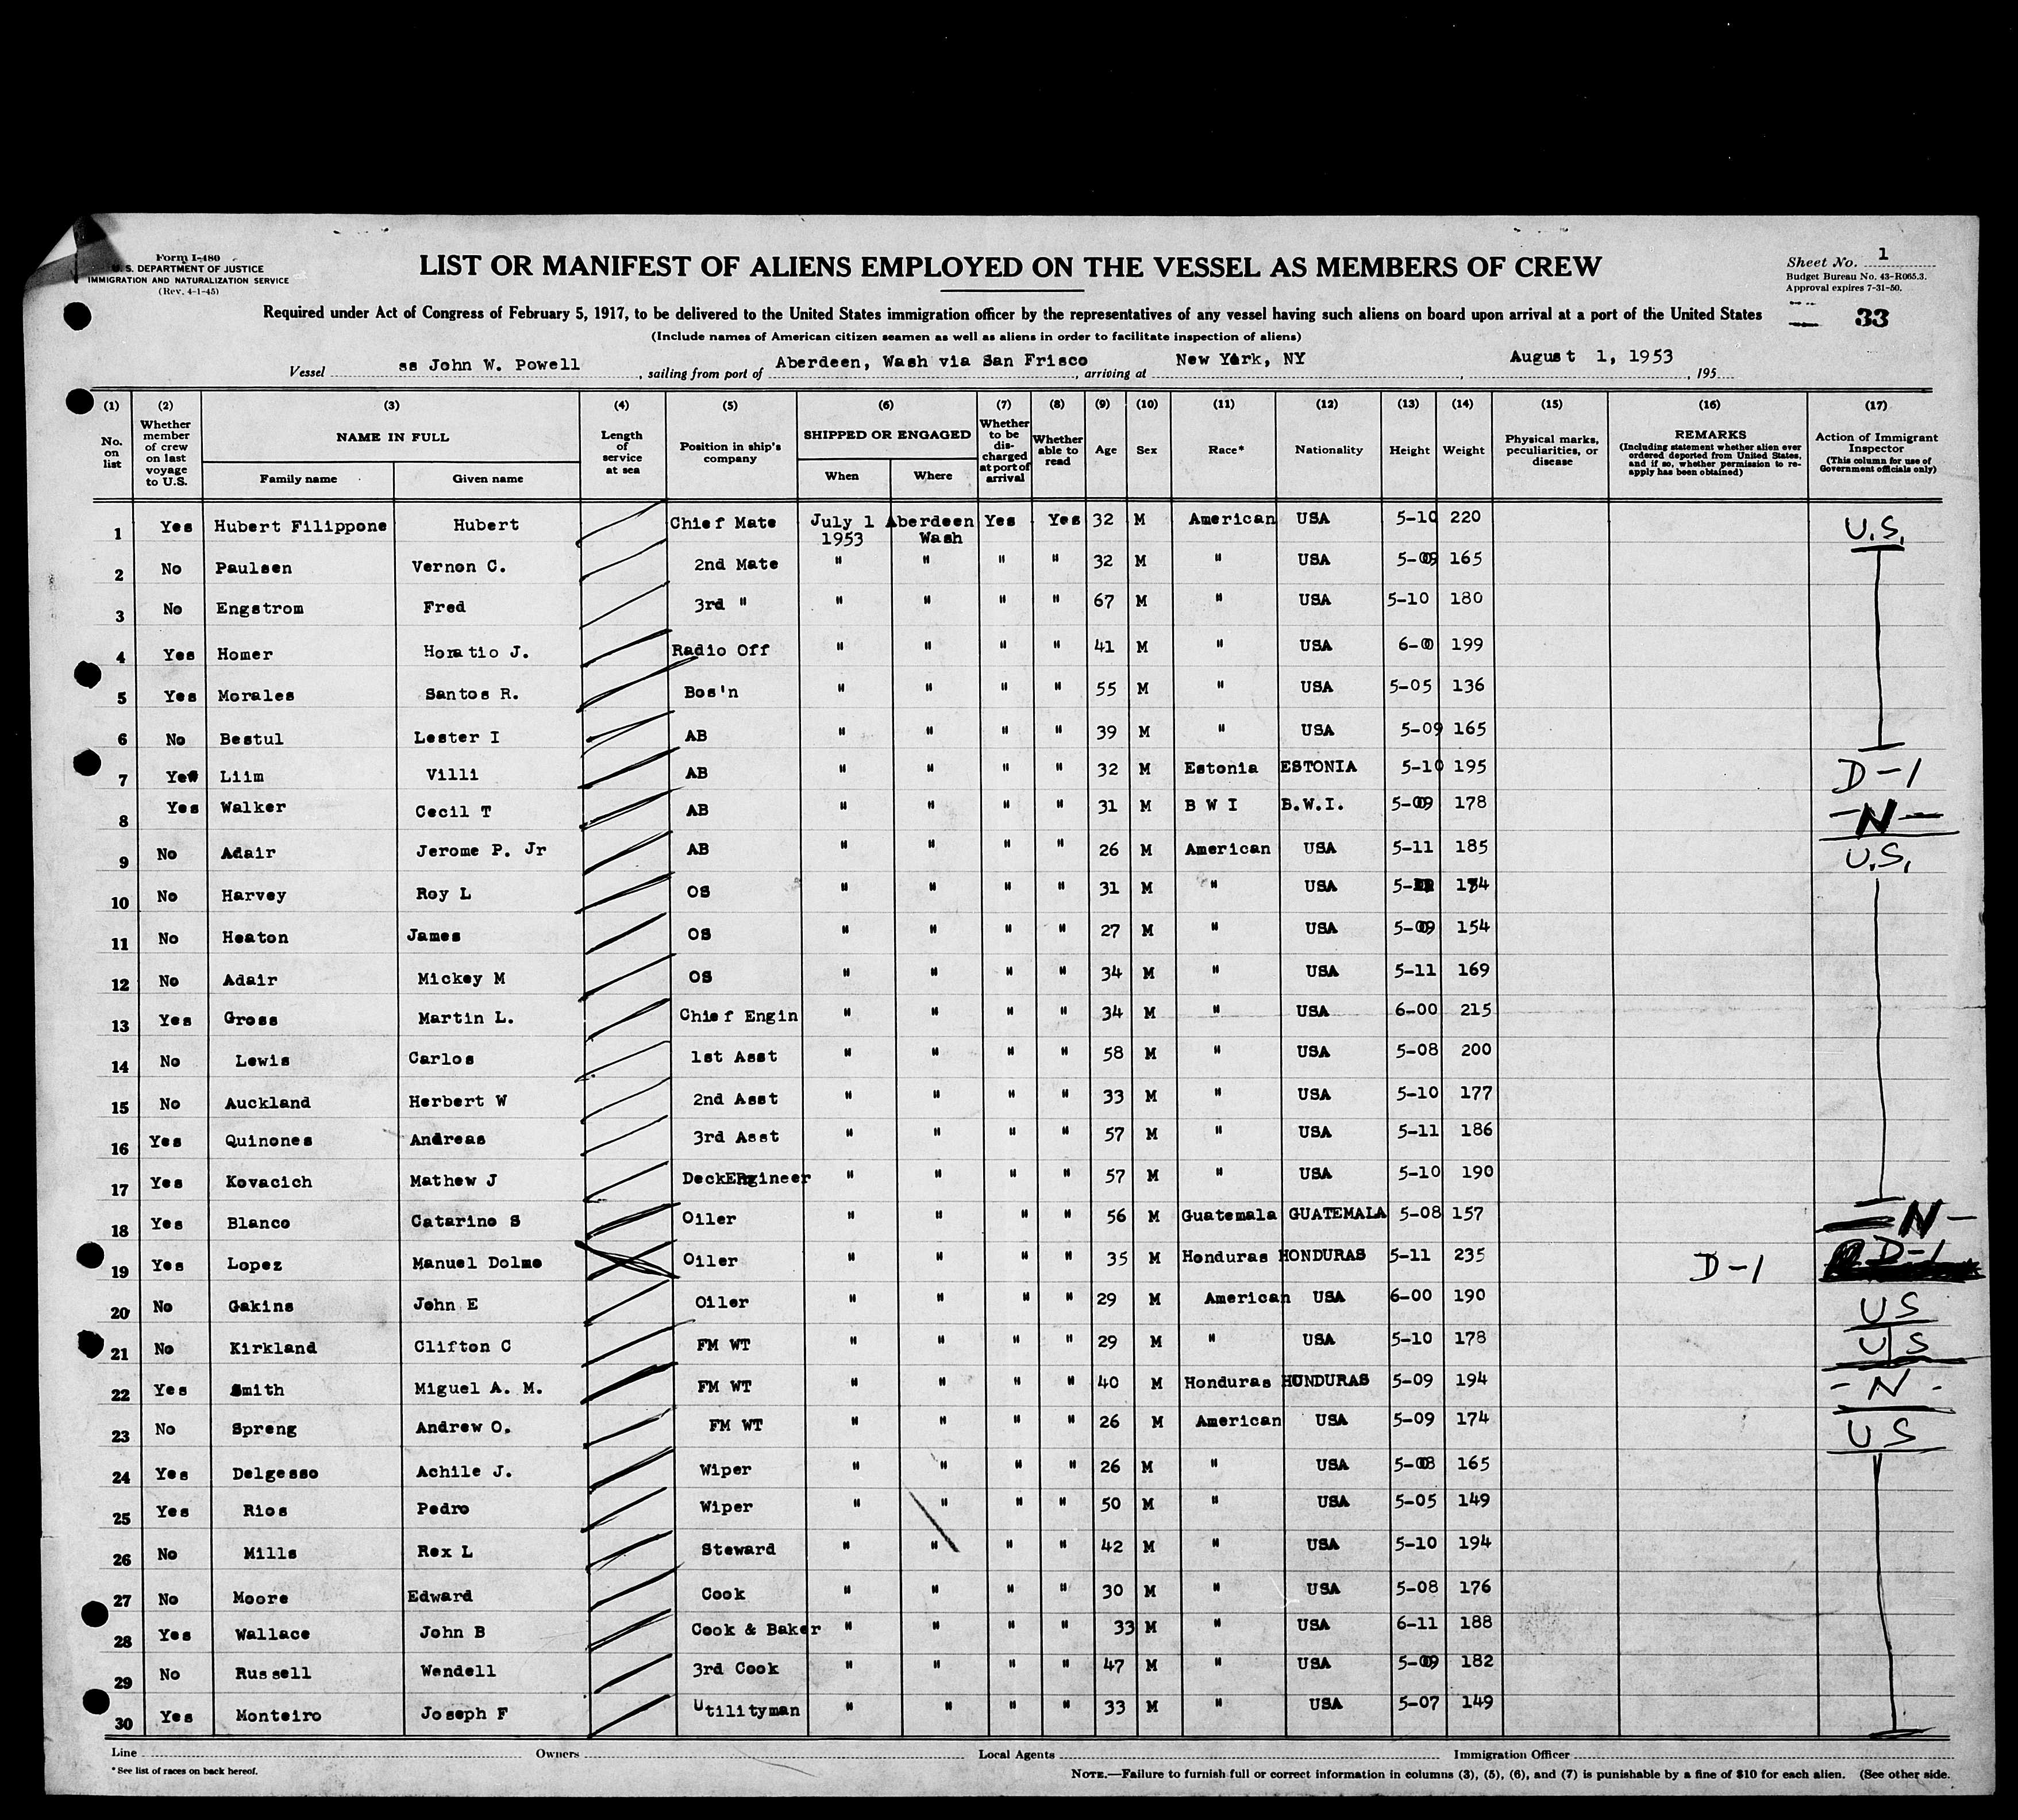 Form I-480
U. S. DEPARTMENT OF JUSTICE
IMMIGRATION AND NATURALIZATION SERVICE
(Rev. 4-1-45)
LIST OR MANIFEST OF ALIENS EMPLOYED ON THE VESSEL AS MEMBERS OF CREW
Sheet No. 1
Budget Bureau No. 43-R065.3.
Approval expires 7-31-50.
Required under Act of Congress of February 5, 1917, to be delivered to the United States immigration officer by the representatives of any vessel having such aliens on board upon arrival at a port of the United States
33
(Include names of American citizen seamen as well as aliens in order to facilitate inspection of aliens)
Vessel ss John W. Powell, sailing from port of Aberdeen, Wash via San Frisco, arriving at New York, NY, August 1, 1953, 195
(1) (2) (3) (4) (5) (6) (7) (8) (9) (10) (11) (12) (13) (14) (15) (16) (17)
No. on list
Whether member of crew on last voyage to U.S.
NAME IN FULL
Family name
Given name
Length of service at sea
Position in ship's company
SHIPPED OR ENGAGED
When
Where
Whether to be discharged at port of arrival
Whether able to read
Age
Sex
Race*
Nationality
Height
Weight
Physical marks, peculiarities, or disease
REMARKS
(Including statement whether alien ever ordered deported from United States, and if so, whether permission to reapply has been obtained)
Action of Immigrant Inspector
(This column for use of Government officials only)
1 Yes Hubert Filippone Hubert Chief Mate July 1 1953 Aberdeen Wash Yes Yes 32 M American USA 5-10 220 U.S.
2 No Paulsen Vernon C. 2nd Mate " " " " 32 M " USA 5-09 165
3 No Engstrom Fred 3rd " " " " " 67 M " USA 5-10 180
4 Yes Homer Horatio J. Radio Off " " " " 41 M " USA 6-0 199
5 Yes Morales Santos R. Bos'n " " " " 55 M " USA 5-05 136
6 No Bestul Lester I AB " " " " 39 M " USA 5-09 165
7 Yes Liim Villi AB " " " " 32 M Estonia ESTONIA 5-10 195 D-1
8 Yes Walker Cecil T AB " " " " 31 M B W I B.W.I. 5-09 178 -N-
9 No Adair Jerome P. Jr AB " " " " 26 M American USA 5-11 185 U.S.
10 No Harvey Roy L OS " " " " 31 M " USA 5- 184
11 No Heaton James OS " " " " 27 M " USA 5-09 154
12 No Adair Mickey M OS " " " " 34 M " USA 5-11 169
13 Yes Gross Martin L. Chief Engin " " " " 34 M " USA 6-00 215
14 No Lewis Carlos 1st Asst " " " " 58 M " USA 5-08 200
15 No Auckland Herbert W 2nd Asst " " " " 33 M " USA 5-10 177
16 Yes Quinones Andreas 3rd Asst " " " " 57 M " USA 5-11 186
17 Yes Kovacich Mathew J Deck Engineer " " " " 57 M " USA 5-10 190
18 Yes Blanco Catarino S Oiler " " " " 56 M Guatemala GUATEMALA 5-08 157 N-
19 Yes Lopez Manuel Dolmo Oiler " " " " 35 M Honduras HONDURAS 5-11 235 D-1 D-1
20 No Gakins John E Oiler " " " " 29 M American USA 6-00 190 US
21 No Kirkland Clifton C FM WT " " " " 29 M " USA 5-10 178 US
22 Yes Smith Miguel A. M. FM WT " " " " 40 M Honduras HONDURAS 5-09 194 -N-
23 No Spreng Andrew O. FM WT " " " " 26 M American USA 5-09 174 US
24 Yes Delgesso Achile J. Wiper " " " " 26 M " USA 5-08 165
25 Yes Rios Pedro Wiper " " " " 50 M " USA 5-05 149
26 No Mills Rex L Steward " " " " 42 M " USA 5-10 194
27 No Moore Edward Cook " " " " 30 M " USA 5-08 176
28 Yes Wallace John B Cook & Baker " " " " 33 M " USA 6-11 188
29 No Russell Wendell 3rd Cook " " " " 47 M " USA 5-09 182
30 Yes Monteiro Joseph F Utilityman " " " " 33 M " USA 5-07 149
Line Owners Local Agents Immigration Officer
*See list of races on back hereof.
NOTE.—Failure to furnish full or correct information in columns (3), (5), (6), and (7) is punishable by a fine of $10 for each alien. (See other side.